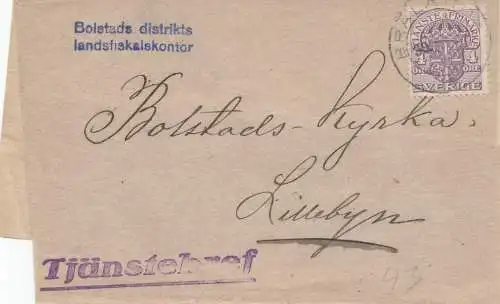 Bolstads distrikts
landsfiskalskontor
TJÄNSTEFRIMÄRKE
4 4
ÖRE ÖRE
SVERIGE
Bolstads-Kyrka,
Lillebyn
Tjänstebref
43